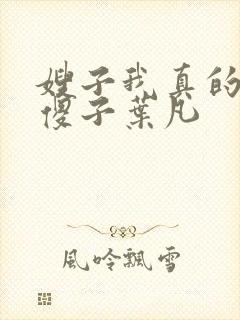 嫂子我真的
傻子葉凡
風吟飄雪